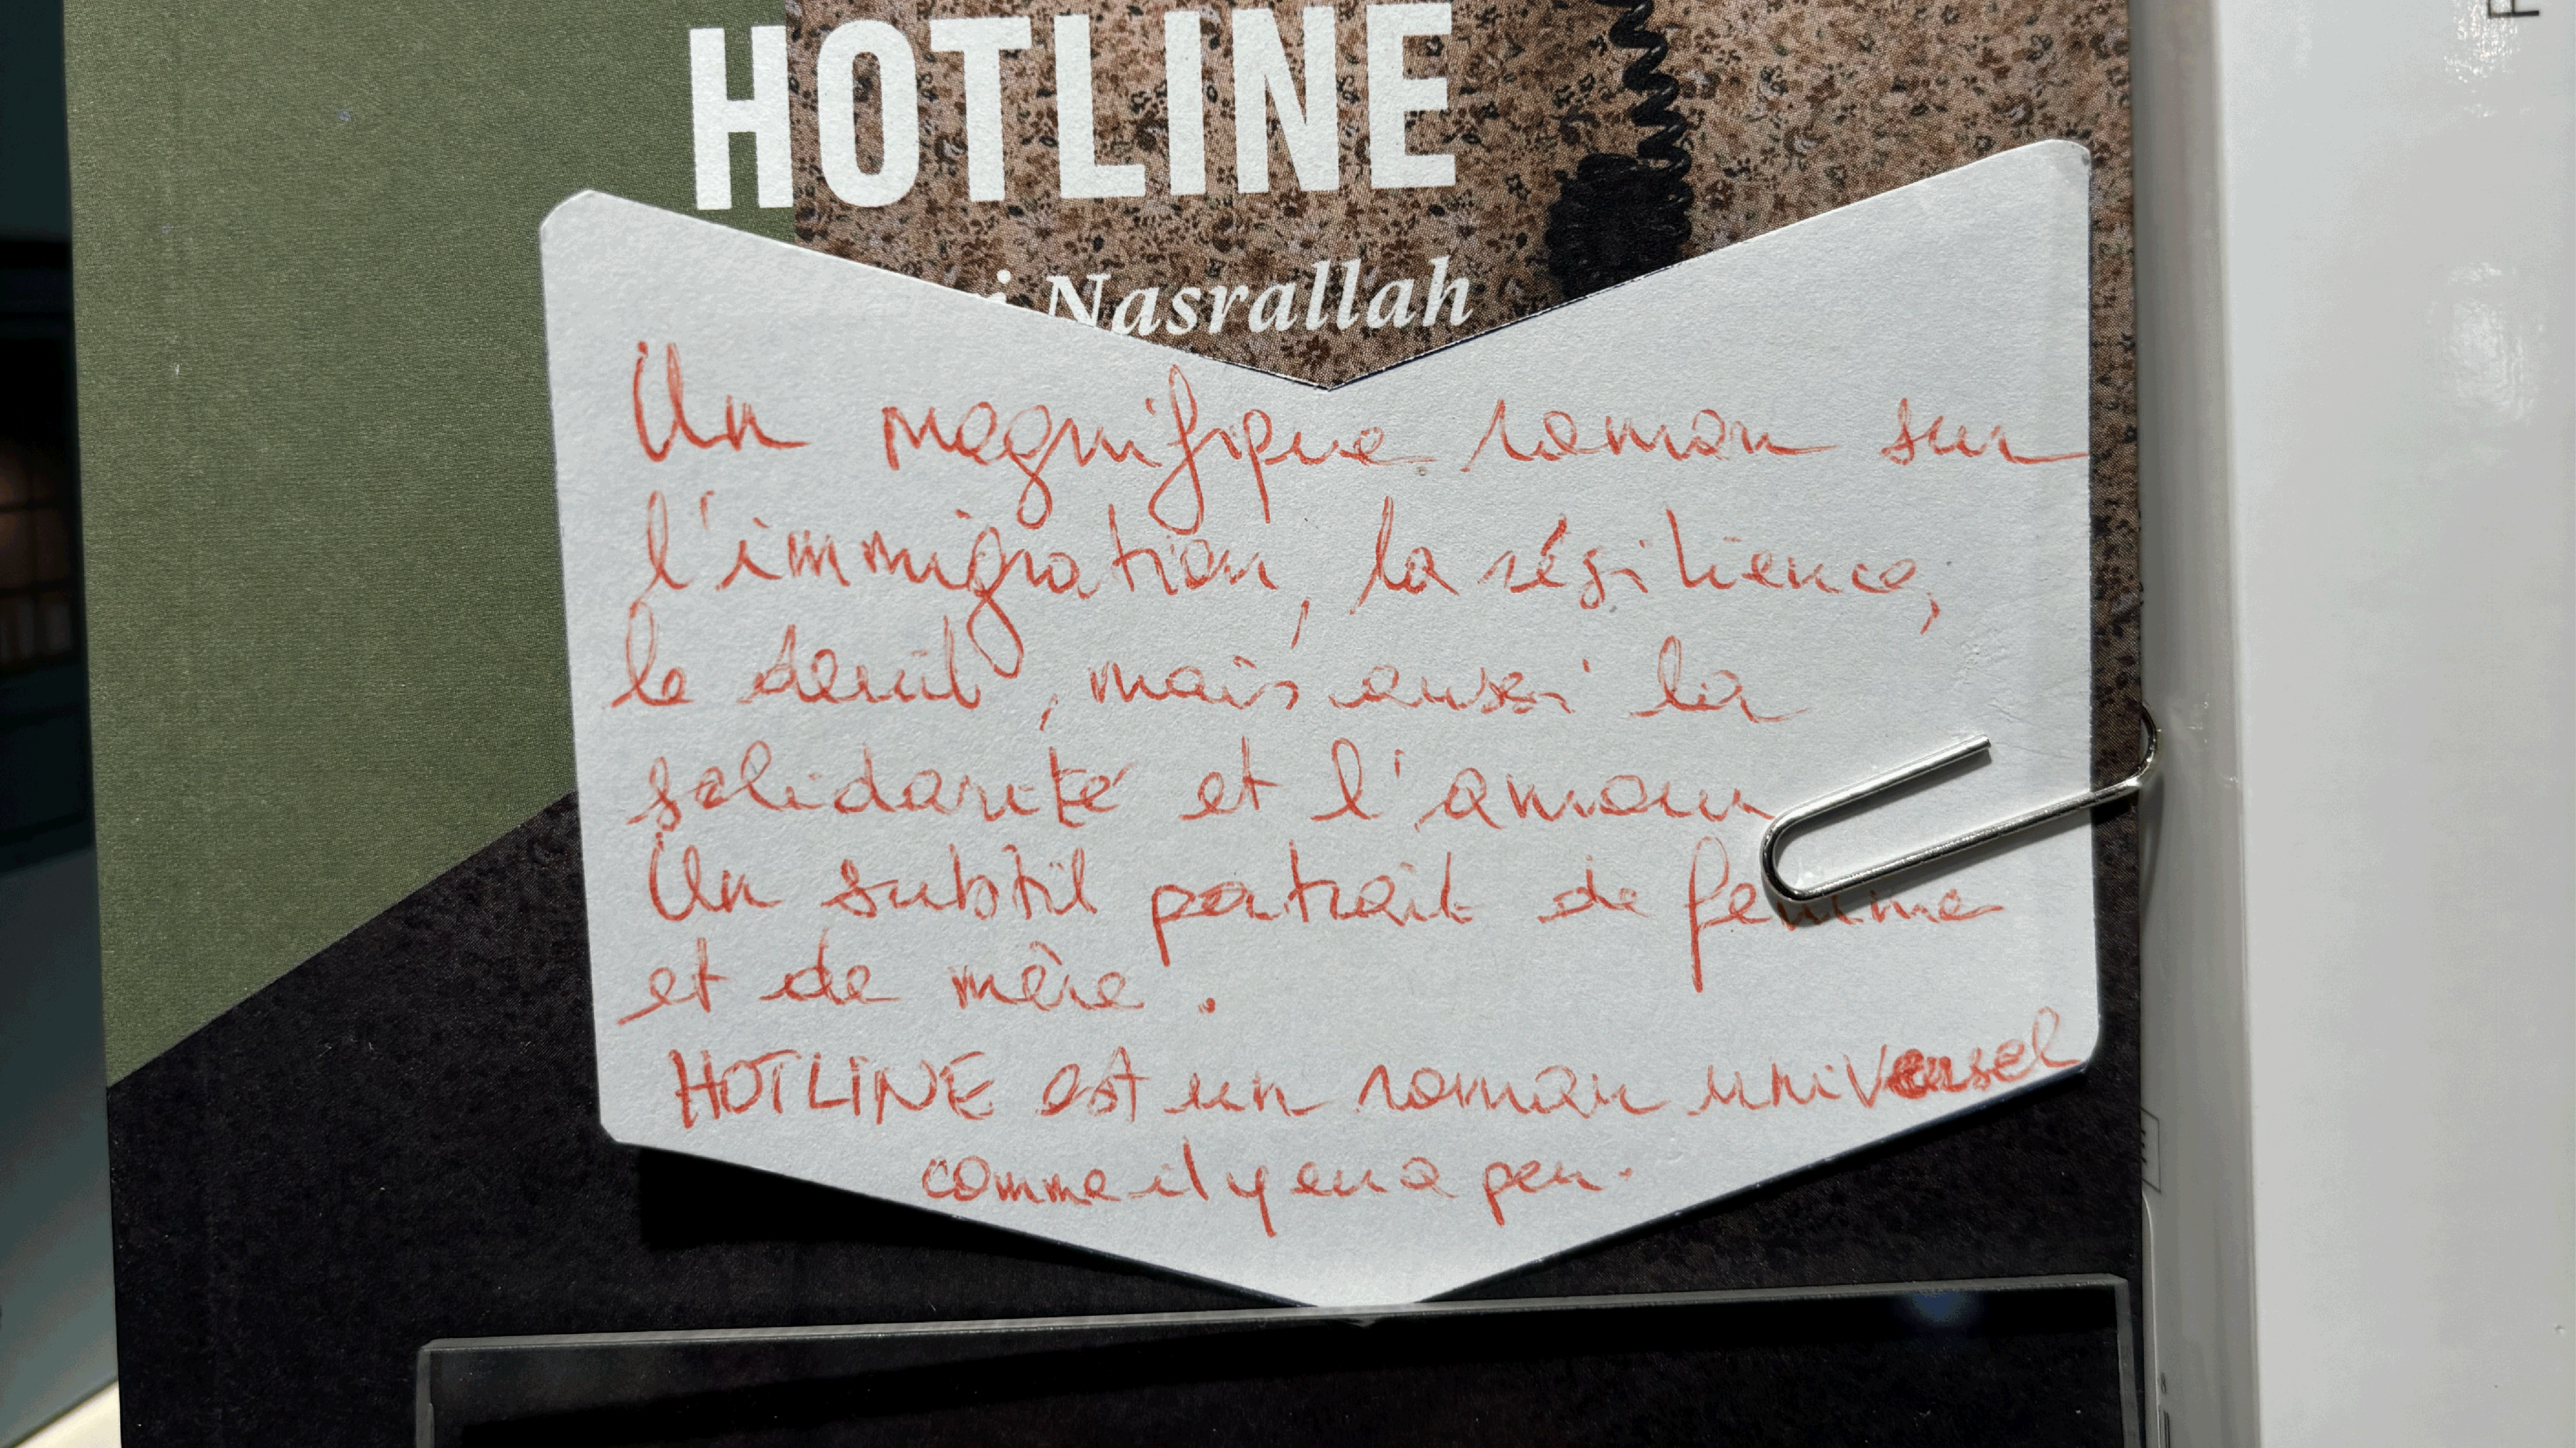 HOTLINE
Nasrallah
Un magnifique roman sur
l'immigration, la résilience,
le deuil, mais aussi la
solidarité et l'amour
Un subtil portrait de femme
et de mère.
HOTLINE est un roman universel
comme il y en a peu.